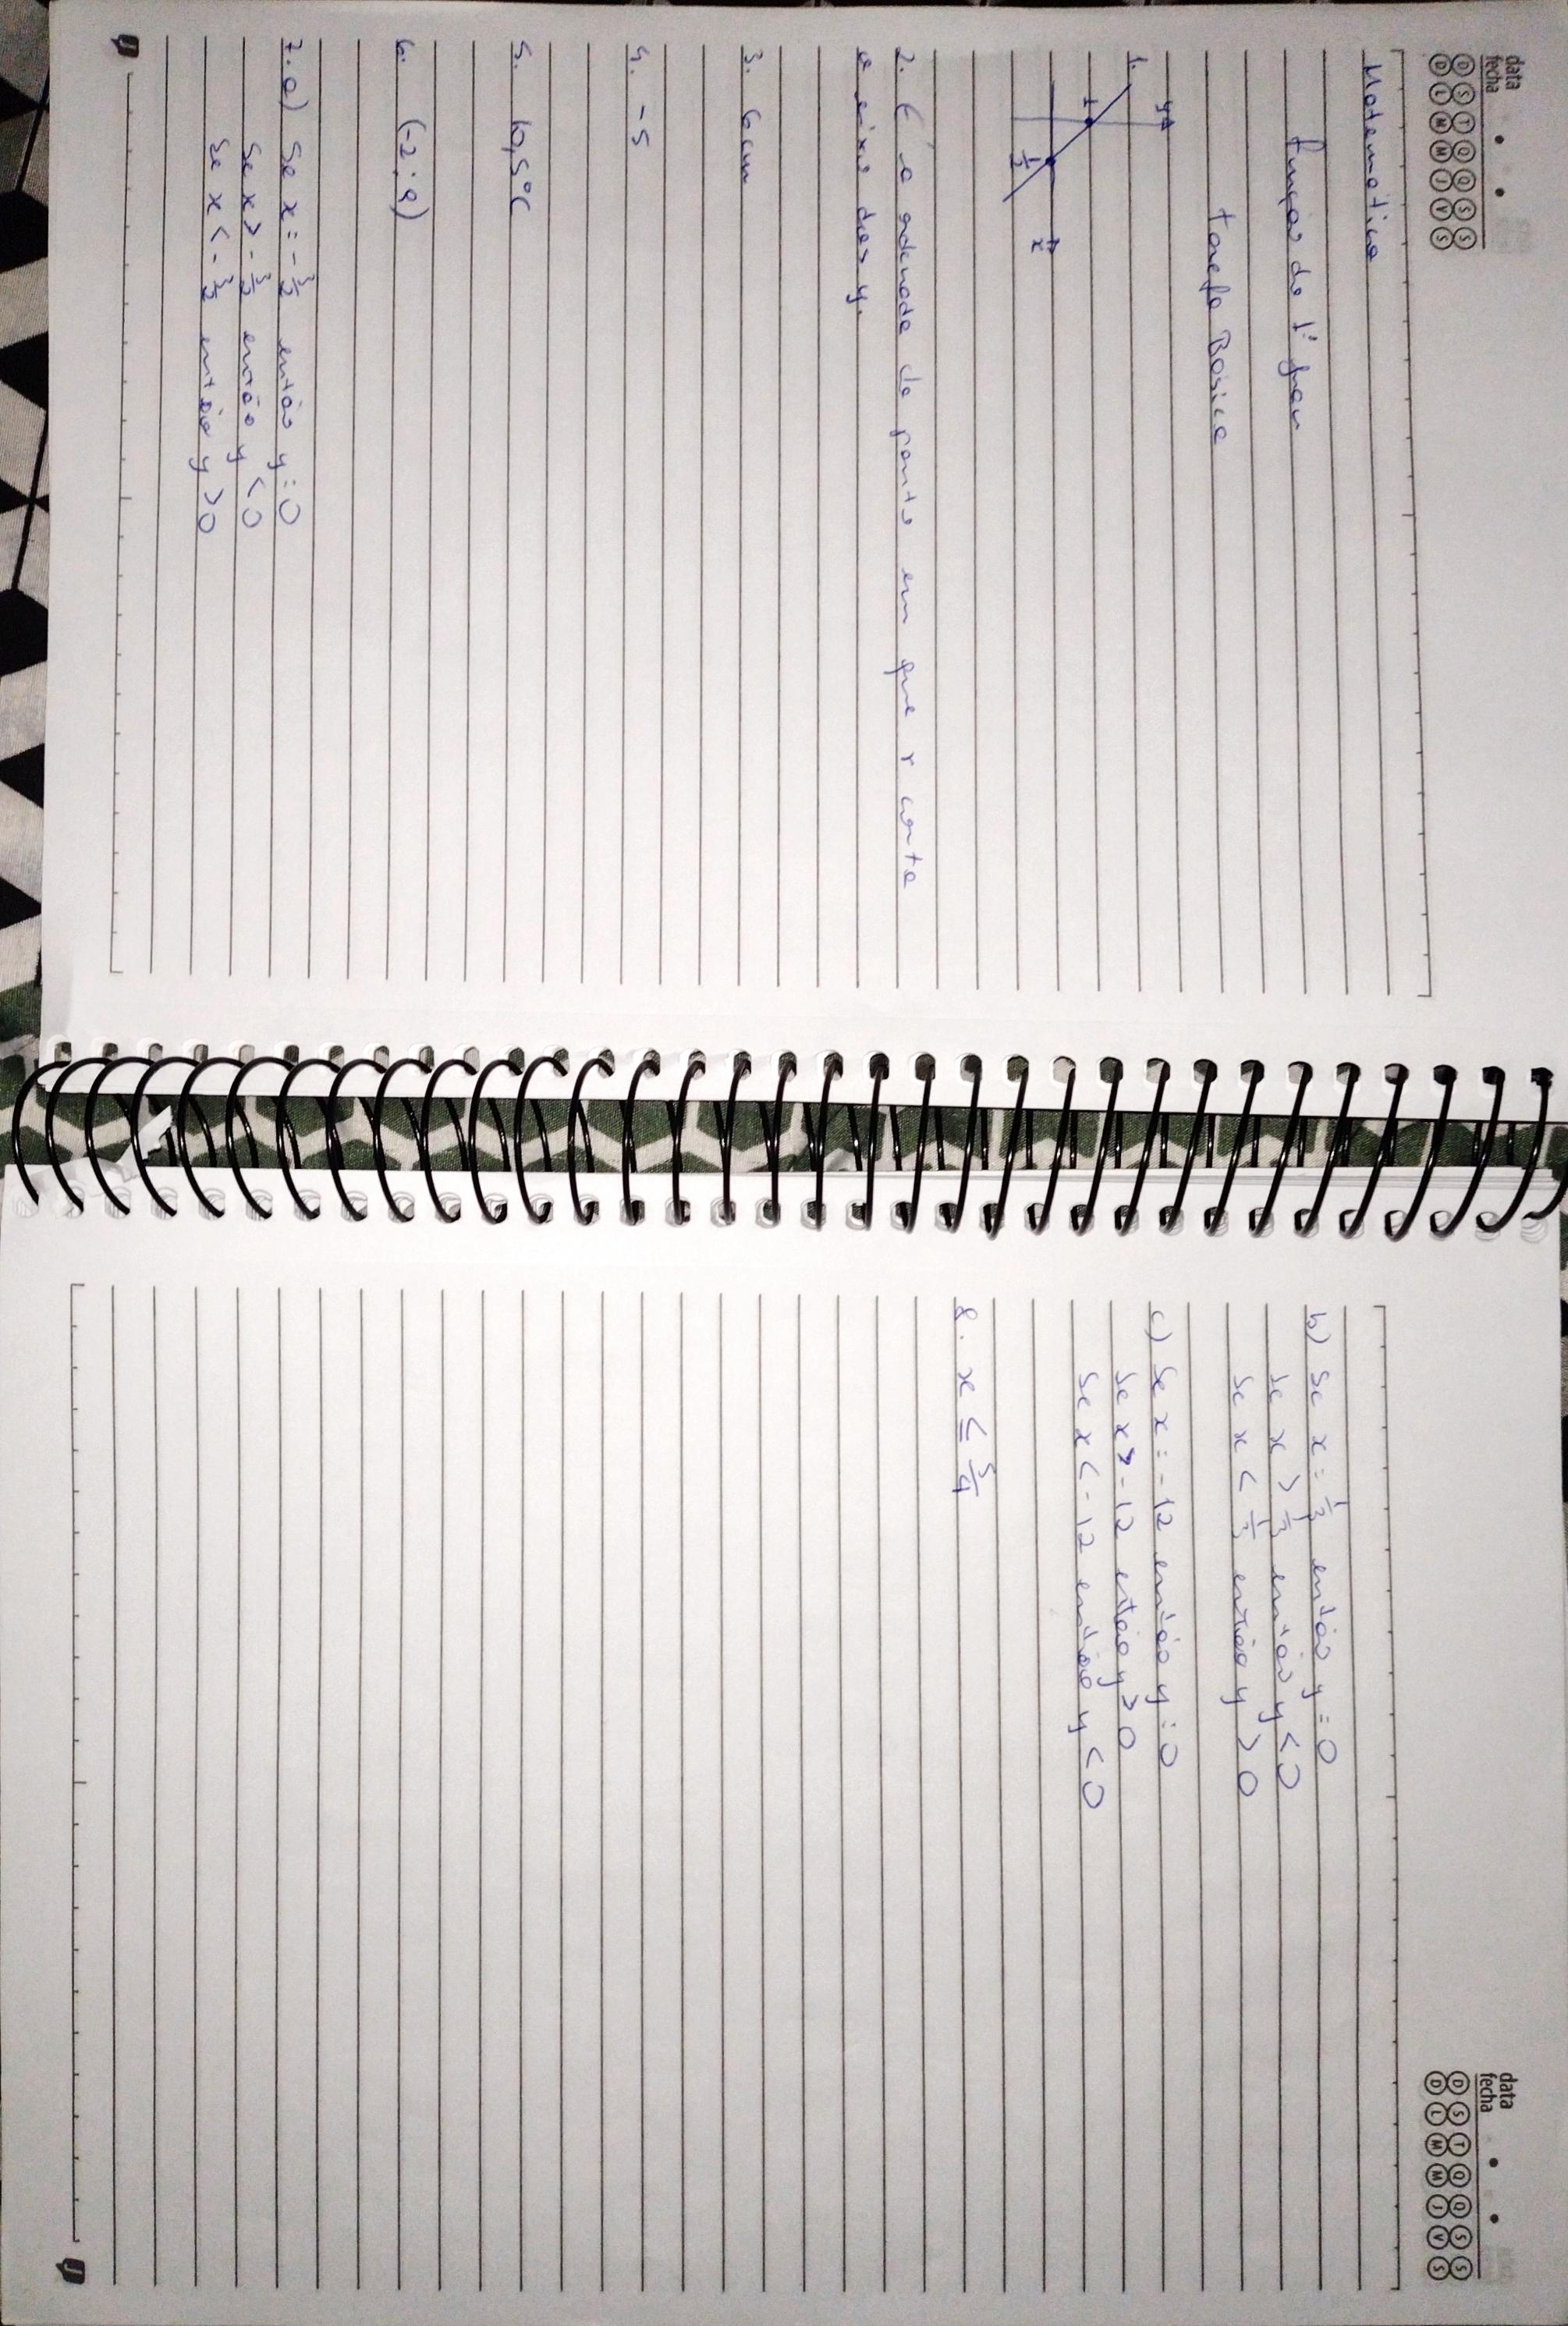 data
fecha
D S T Q Q S S
D L M M J V S
Matemática
Função do 1º grau
Tarefa Básica
1.
y
1
1/2
x
2. É a ordenada do ponto em que r corta
o eixo dos y.
3. 6cm
4. -5
5. 10,5°C
6. (-2;9)
7. a) Se x = -3/2 então y=0
Se x > -3/2 então y < 0
Se x < -3/2 então y > 0
data
fecha
D S T Q Q S S
D L M M J V S
b) Se x = 1/3 então y = 0
Se x > 1/3 então y < 0
Se x < 1/3 então y > 0
c) Se x = -12 então y = 0
Se x > -12 então y > 0
Se x < -12 então y < 0
8. x ≤ 5/4